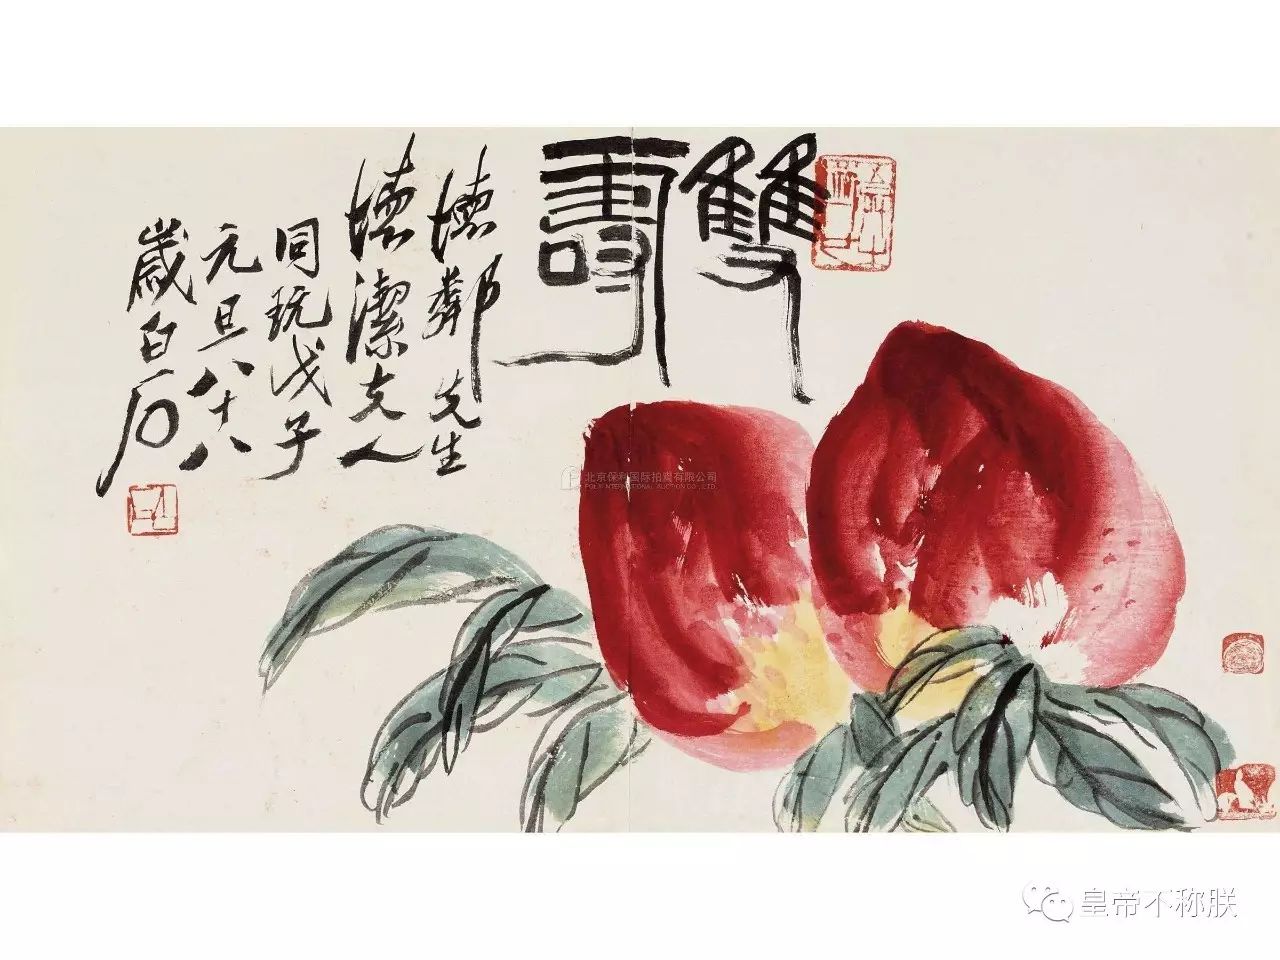 雙壽
德鄰先生
德潔夫人
同玩戊子
元旦八十八
歲白石
北京保利国际拍卖有限公司
POLY INTERNATIONAL AUCTION CO., LTD.
皇帝不称朕